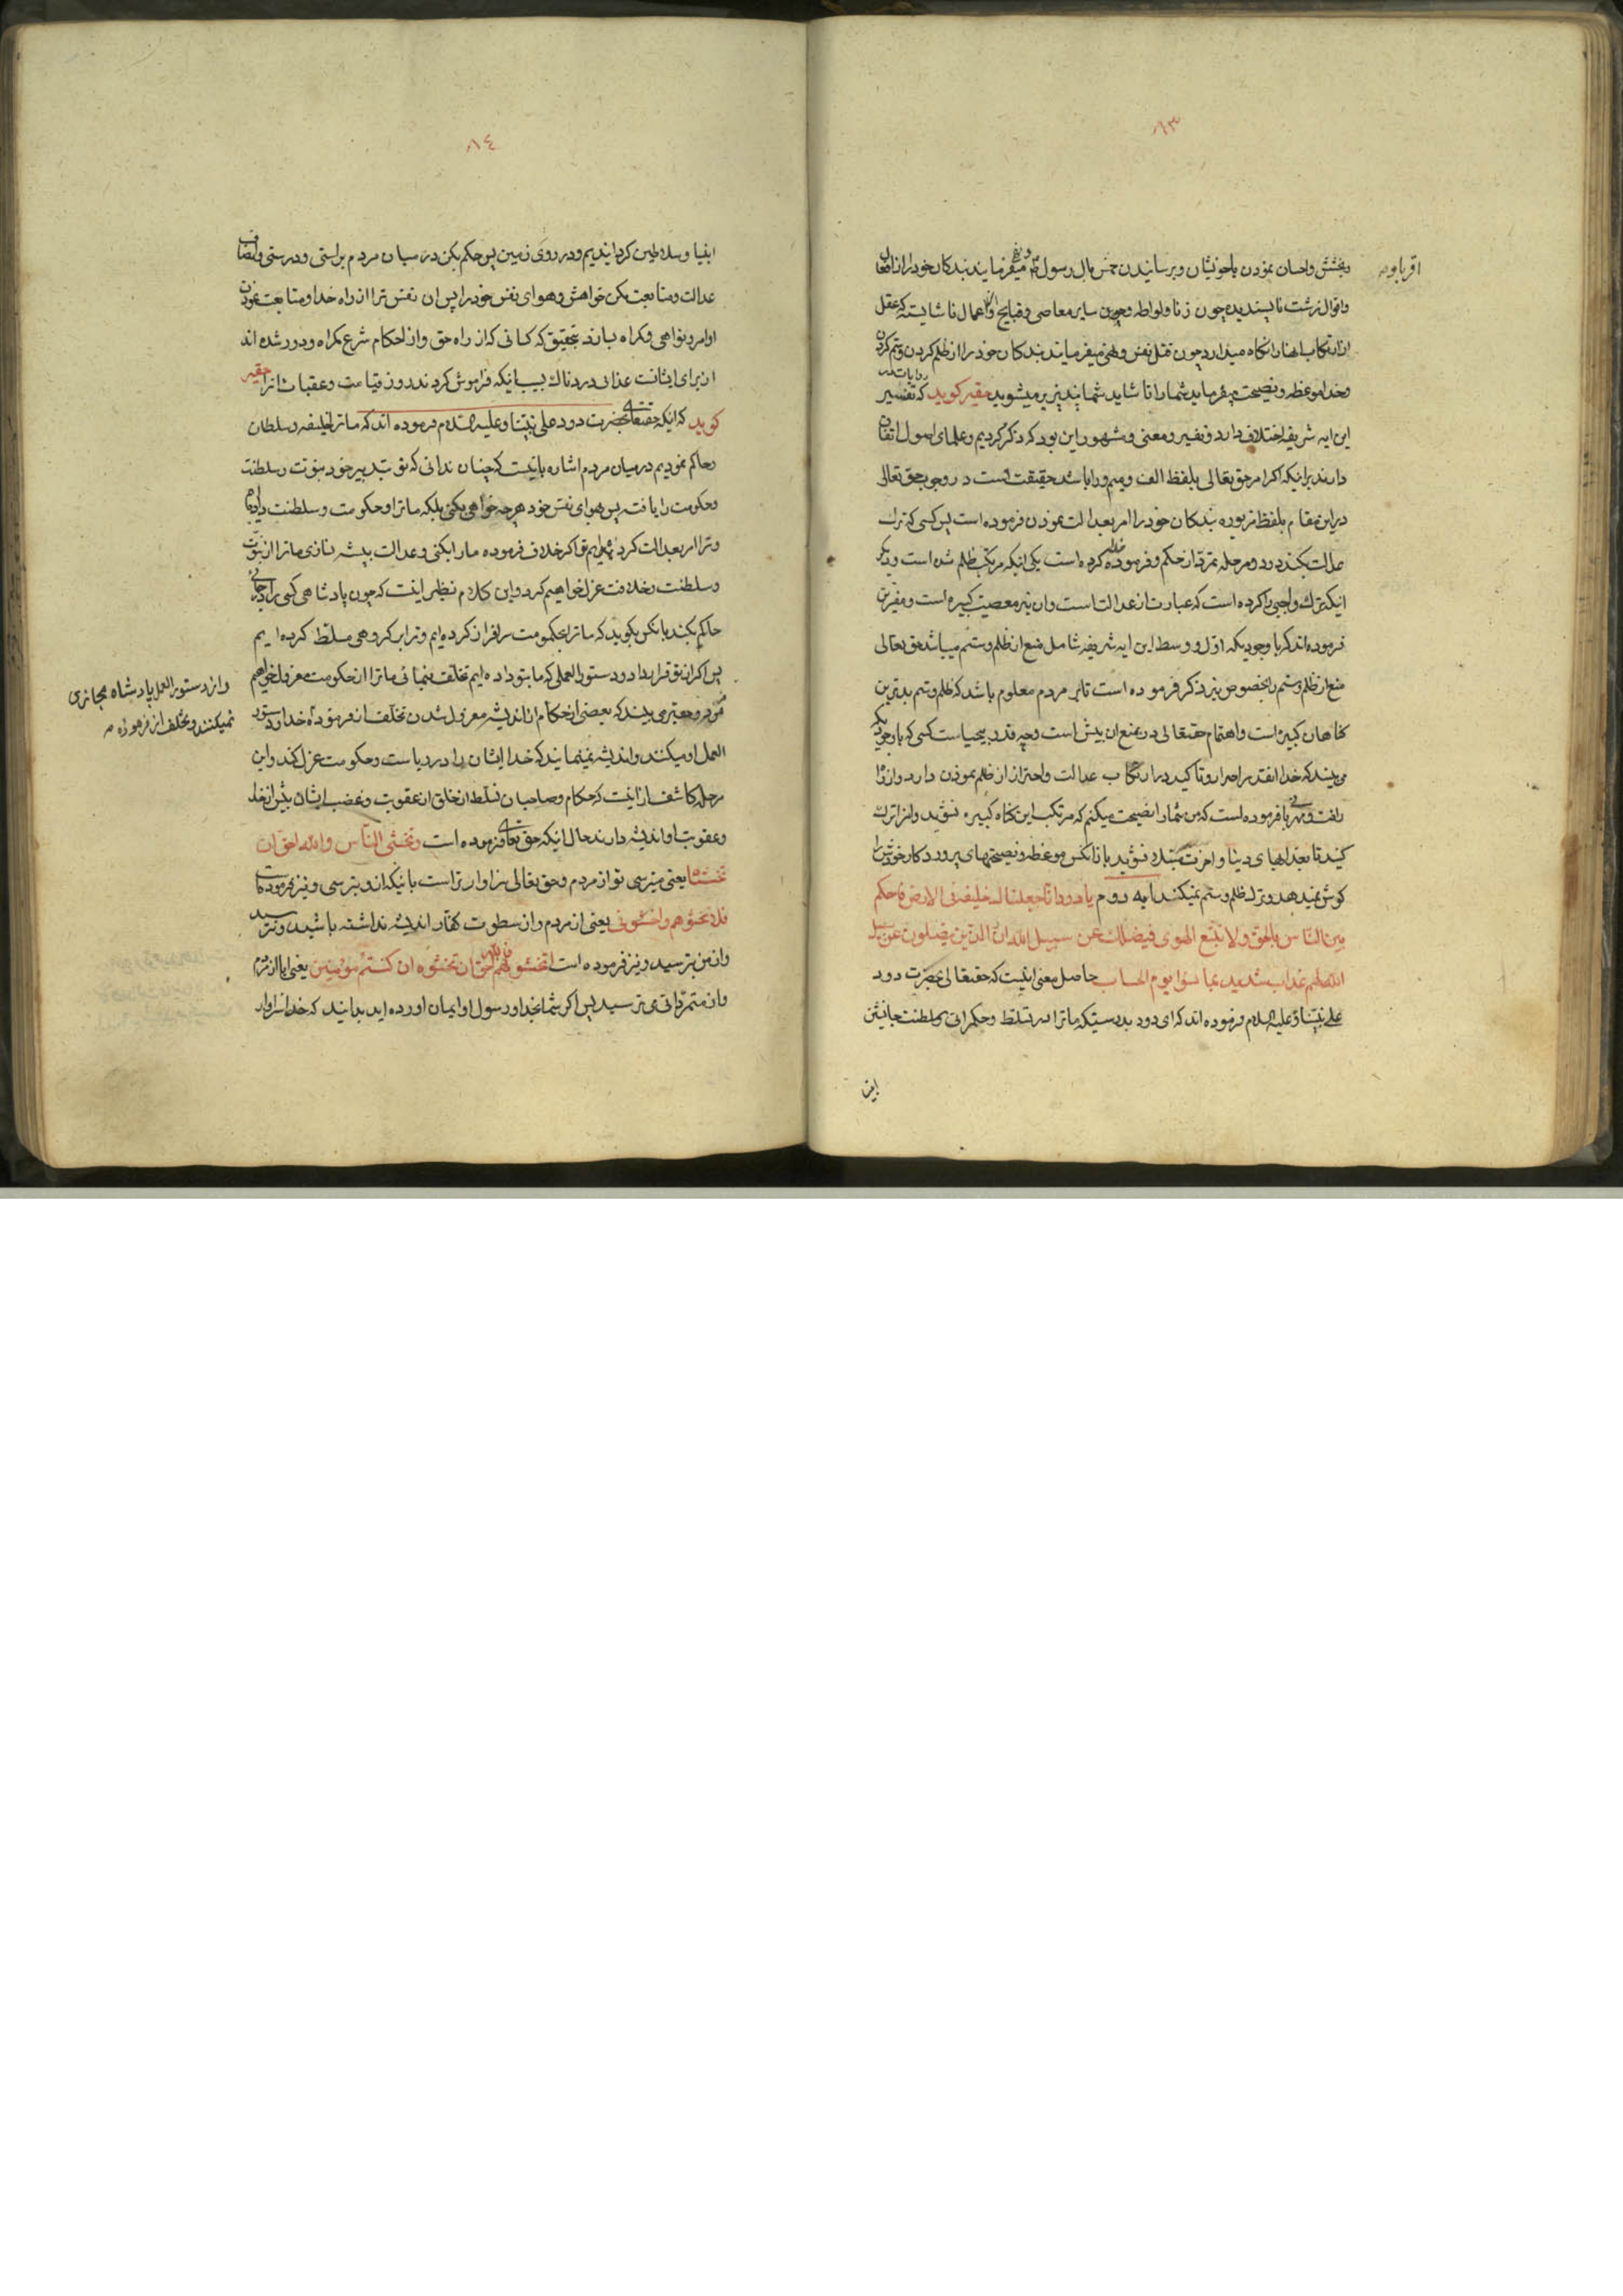 ۱۳
و بخشش و احسان نمودن باخویشان و برسانیدن خمس بال رسول و نهی میفرمایند بندکان خود را از افعال
اقربا بود
و اقوال زشت ناپسندیده چون زنا و لواطه و چون سایر معاصی و قبایح و اعمال ناشایسته که عقل
از ارتکاب انها را نکاه میدارد چون قتل نفس و نهی میفرمایند بندکان خود را از ظلم کردن و ستم کردن
و خدا موعظه و نصیحت میفرماید شما را تا شاید شما پندپذیر میشوید حقیر کوید که تفسیر
روایات در
این ایه شریفه اختلاف دارد و تفسیر و معنی مشهور این بود که ذکر کردیم و علمای اصول اتفاق
دارند برانیکه اکر امر حق تعالی بلفظ الف و میم و را باشد حقیقت است در وجوب حق تعالی
در این مقام بلفظ مزبوره بندکان خود را امر بعدالت نمودن فرموده است پس کسی که ترک
عدالت بکند در دو مرحله تمرد از حکم و فرموده خدا کرده است یکی انیکه مرتکب ظلم شده است و دیکر
انیکه ترک واجبی را کرده است که عبارت از عدالت است و ان نیز معصیت کبیره است و مفسرین
فرموده اند که با وجودیکه اول و وسط این ایه شریفه شامل منع از ظلم و ستم میباشد حق تعالی
منع از ظلم و ستم را بخصوص نیز ذکر فرموده است تا بر مردم معلوم باشد که ظلم و ستم بدترین
کناهان کبیره است و اهتمام حقتعالی در منع ان بیش است و چه قدر بیحیاست کسی که با وجودیکه
می بیند که خدا انقدر اصرار و تاکید در ارتکاب عدالت و احتراز از ظلم نمودن دارد و از راه
رافت و مهربانی فرموده است که من شما را نصیحت میکنم که مرتکب این کناه کبیره نشوید و انرا ترک
کنید تا بعذابهای دنیا و اخرت مبتلا نشوید باز انکس موعظه و نصیحتهای پروردکار خودش را
کوش نمیدهد و ترک ظلم و ستم نمیکند ایه دوم یا داود انا جعلناک خلیفة فی الارض فاحکم
بین الناس بالحق و لا تتبع الهوی فیضلک عن سبیل الله ان الذین یضلون عن سبیل
الله لهم عذاب شدید بما نسوا یوم الحساب حاصل معنی اینست که حقیقالی بحضرت داود
علی نبینا و علیه السلام فرموده اند که ای داود بدرستیکه ما ترا در تسلط و حکمرانی و سلطنت جانشین
ابنیا
۱٤
ابنیا و سلاطین کردانیدیم و در روی زمین پس حکم بکن در میان مردم براستی و درستی و انصاف
عدالت و متابعت مکن خواهش و هوای نفس خود را پس ان نفس ترا از راه خدا و متابعت نمودن
اوامر و نواهی او کمراه سازد بتحقیق که کسانی که از راه حق و از احکام شرع کمراه و دور شده اند
از برای ایشانست عذابی دردناک بسبب انیکه فراموش کردند روز قیامت و عقبات انرا حقیر
کوید که انیکه حقتعالی بحضرت داود علی نبینا و علیه السلام فرموده اند که ما ترا خلیفه و سلطان
و حاکم نمودیم در میان مردم اشاره باینست که چنان ندانی که تو بتدبیر خود نبوت و سلطنت
و حکومت را یافته پس بهوای نفس خود هر چه خواهی بکنی بلکه ما ترا و حکومت و سلطنت داده‌ایم
و ترا امر بعدالت کرده‌ایم تو اکر خلاف فرموده ما را بکنی و عدالت پیشه نسازی ما ترا از نبوت
و سلطنت و خلافت عزل خواهیم کرد و این کلام نظیر اینست که چون پادشاهی کسی را در جائی
حاکم بکند بانکس بکوید که ما ترا بحکومت سرافراز کرده ایم و ترا بر کروهی مسلط کرده ایم
پس اکر از تو قرارداد و دستورالعملی که ما بتو داده ایم تخلف بنمائی ما ترا از حکومت معزول خواهیم
نمود و حقیر می بیند که بعضی از حکام از اندیشه معزول شدن تخلف از فرموده خدا و دستور
و از دستور العمل پادشاه مجازی
نمیکنند و تخلف از فرموده
العمل او میکنند و اندیشه نمینمایند که خدا ایشان را در ریاست و حکومت عزل کند و این
مرحله کاشف از اینست که حکام و صاحبان تسلط از خلق از عقوبت و غضب ایشان بیش از خدا
و عقوبت او اندیشه دارند حال انیکه حق تعالی فرموده است و تخشی الناس و الله احق ان
تخشیه یعنی میترسی تو از مردم و حق تعالی سزاوارتر است بانیکه از او بترسی و نیز فرموده است
فلا تخشوهم و اخشونی یعنی از مردم و از سطوت کفار اندیشه نداشته باشید و نترسید
و از من بترسید و نیز فرموده است اتخشونهم فالله احق ان تخشوه ان کنتم مؤمنین یعنی ایا از مردم
و از متمردان می ترسید پس اکر شما بخدا و رسول او ایمان اورده اید بدانید که خدا سزاوار